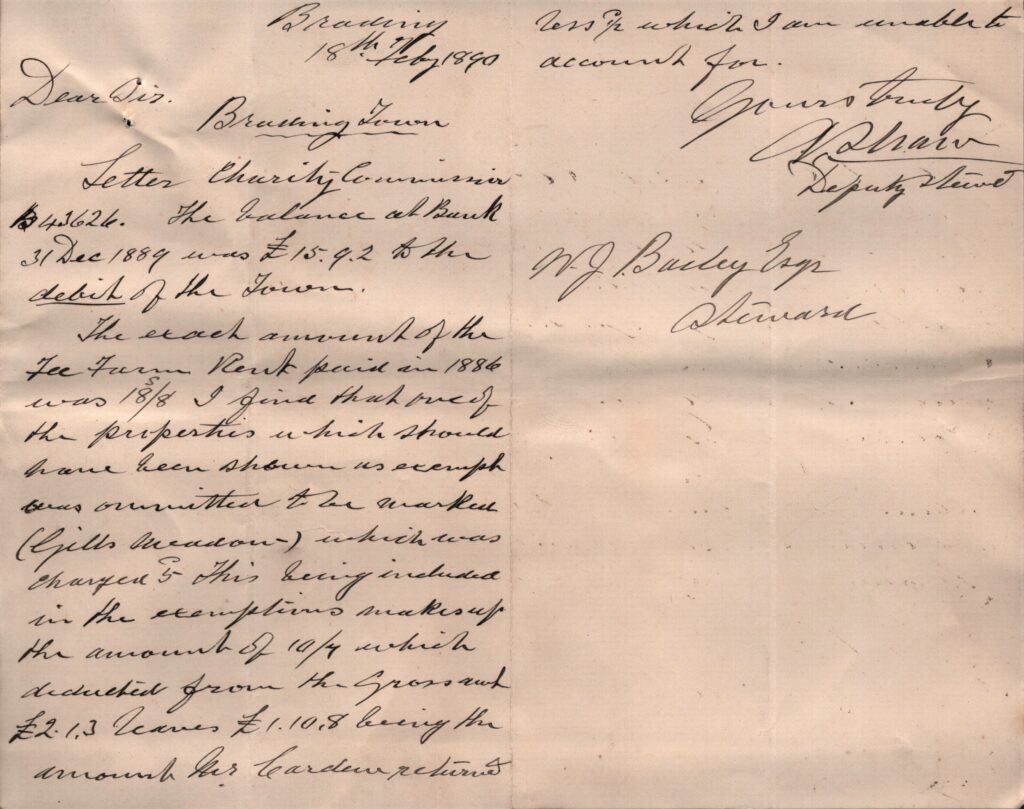 Brading
18th Feby 1890
Dear Sir.
Brading Town
Letter Charity Commission
B 43626. The balance at Bank
31 Dec 1889 was £15.9.2 to the
debit of the Town.
The exact amount of the
Fee Farm Rent paid in 1886
was 18s/8 I find that one of
the properties which should
have been shown as exempt
was ommitted to be marked
(Gills Meadow) which was
charged 5d This being included
in the exemptions makes up
the amount of 10/7 which
deducted from the Gross amt
£2.1.3 leaves £1.10.8 being the
amount Mr Cardew returned
less which I am unable to
account for.
Yours truly
Shaw
Deputy Steward
W. J. Bailey Esqr
Steward